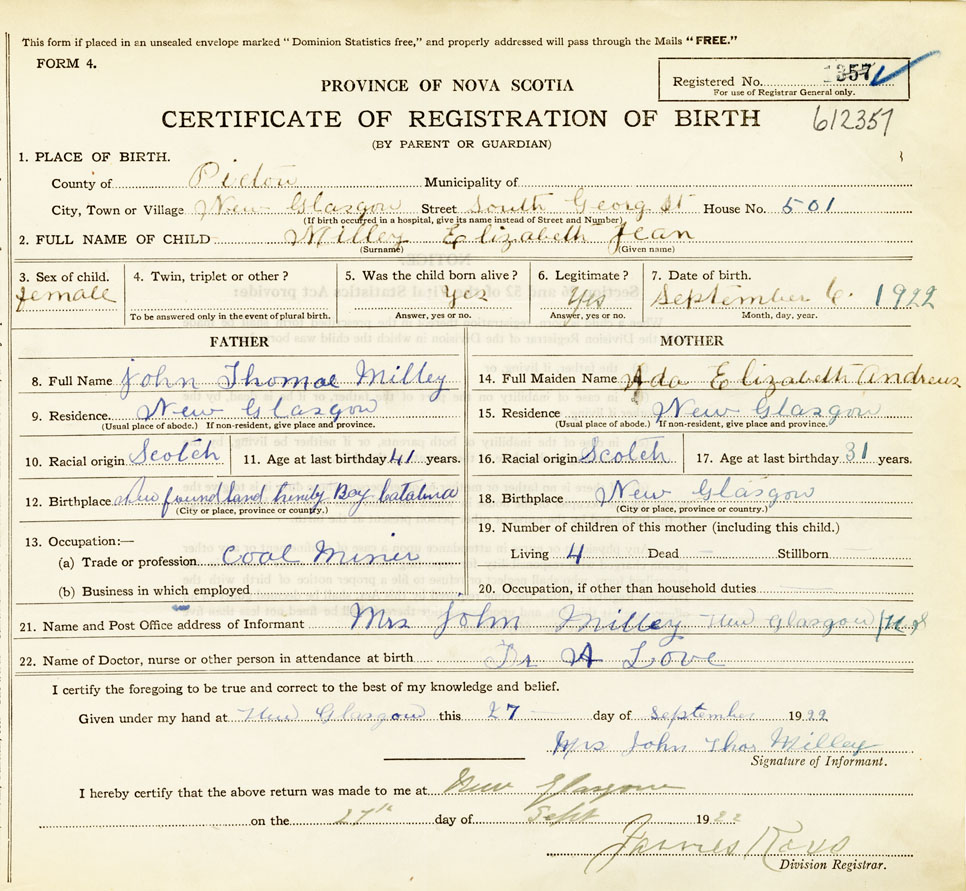 This form if placed in an unsealed envelope marked "Dominion Statistics free," and properly addressed will pass through the Mails "FREE."
FORM 4.
Registered No. 1357
For use of Registrar General only.
PROVINCE OF NOVA SCOTIA
CERTIFICATE OF REGISTRATION OF BIRTH 612357
(BY PARENT OR GUARDIAN)
1. PLACE OF BIRTH.
County of Pictou Municipality of
City, Town or Village New Glasgow Street South Georg St House No. 501
(If birth occurred in a hospital, give its name instead of Street and Number)
2. FULL NAME OF CHILD Milley Elizabeth Jean
(Surname) (Given name)
3. Sex of child. 4. Twin, triplet or other? 5. Was the child born alive? 6. Legitimate? 7. Date of birth.
female Yes Yes September 6. 1922
To be answered only in the event of plural birth. Answer, yes or no. Answer, yes or no. Month, day, year.
FATHER MOTHER
8. Full Name John Thomae Milley 14. Full Maiden Name Ada Elizabeth Andrews
9. Residence. New Glasgow 15. Residence New Glasgow
(Usual place of abode.) If non-resident, give place and province. (Usual place of abode.) If non-resident, give place and province.
10. Racial origin Scotch 11. Age at last birthday 41 years. 16. Racial origin Scotch 17. Age at last birthday 31 years.
12. Birthplace New foundland trinity Bay Catalina 18. Birthplace New Glasgow
(City or place, province or country.) (City or place, province or country.)
19. Number of children of this mother (including this child.)
13. Occupation:—
(a) Trade or profession Coal Miner Living 4 Dead — Stillborn —
(b) Business in which employed 20. Occupation, if other than household duties
21. Name and Post Office address of Informant Mrs John Milley New Glasgow N S
22. Name of Doctor, nurse or other person in attendance at birth Dr A Love
I certify the foregoing to be true and correct to the best of my knowledge and belief.
Given under my hand at New Glasgow this 27 day of September 1922
Mrs John Thos Milley
Signature of Informant.
I hereby certify that the above return was made to me at New Glasgow
on the 27th day of Sept 1922
James Ross
Division Registrar.